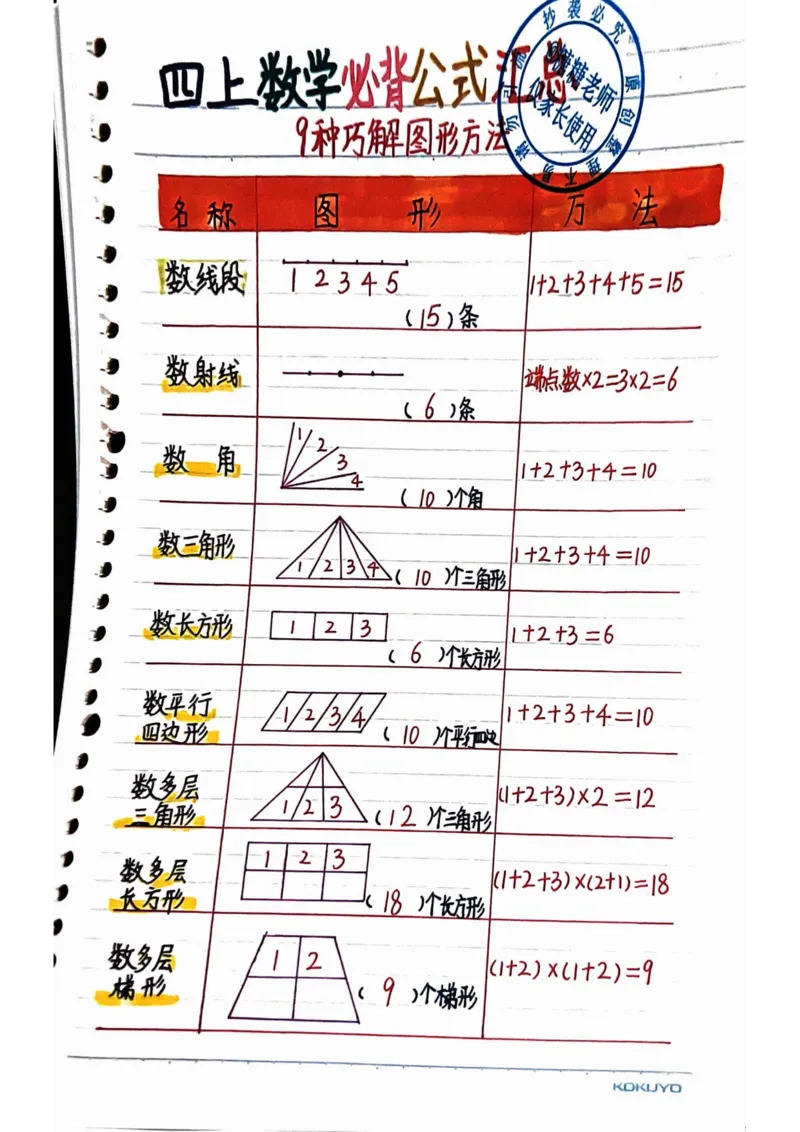 四上数学必背公式汇总
9种巧解图形方法
抄袭必究 原创整理不易 请勿
糖糖老师
仅家长使用
名称 图 形 方 法
数线段
1 2 3 4 5
(15)条
1+2+3+4+5=15
数射线
(6)条
端点数×2=3×2=6
数 角
1 2 3 4
(10)个角
1+2+3+4=10
数三角形
1 2 3 4
(10)个三角形
1+2+3+4=10
数长方形
1 2 3
(6)个长方形
1+2+3=6
数平行
四边形
1 2 3 4
(10)个平行四边
1+2+3+4=10
数多层
三角形
1 2 3
(12)个三角形
(1+2+3)×2=12
数多层
长方形
1 2 3
(18)个长方形
(1+2+3)×(2+1)=18
数多层
梯形
1 2
(9)个梯形
(1+2)×(1+2)=9
KOKUYO